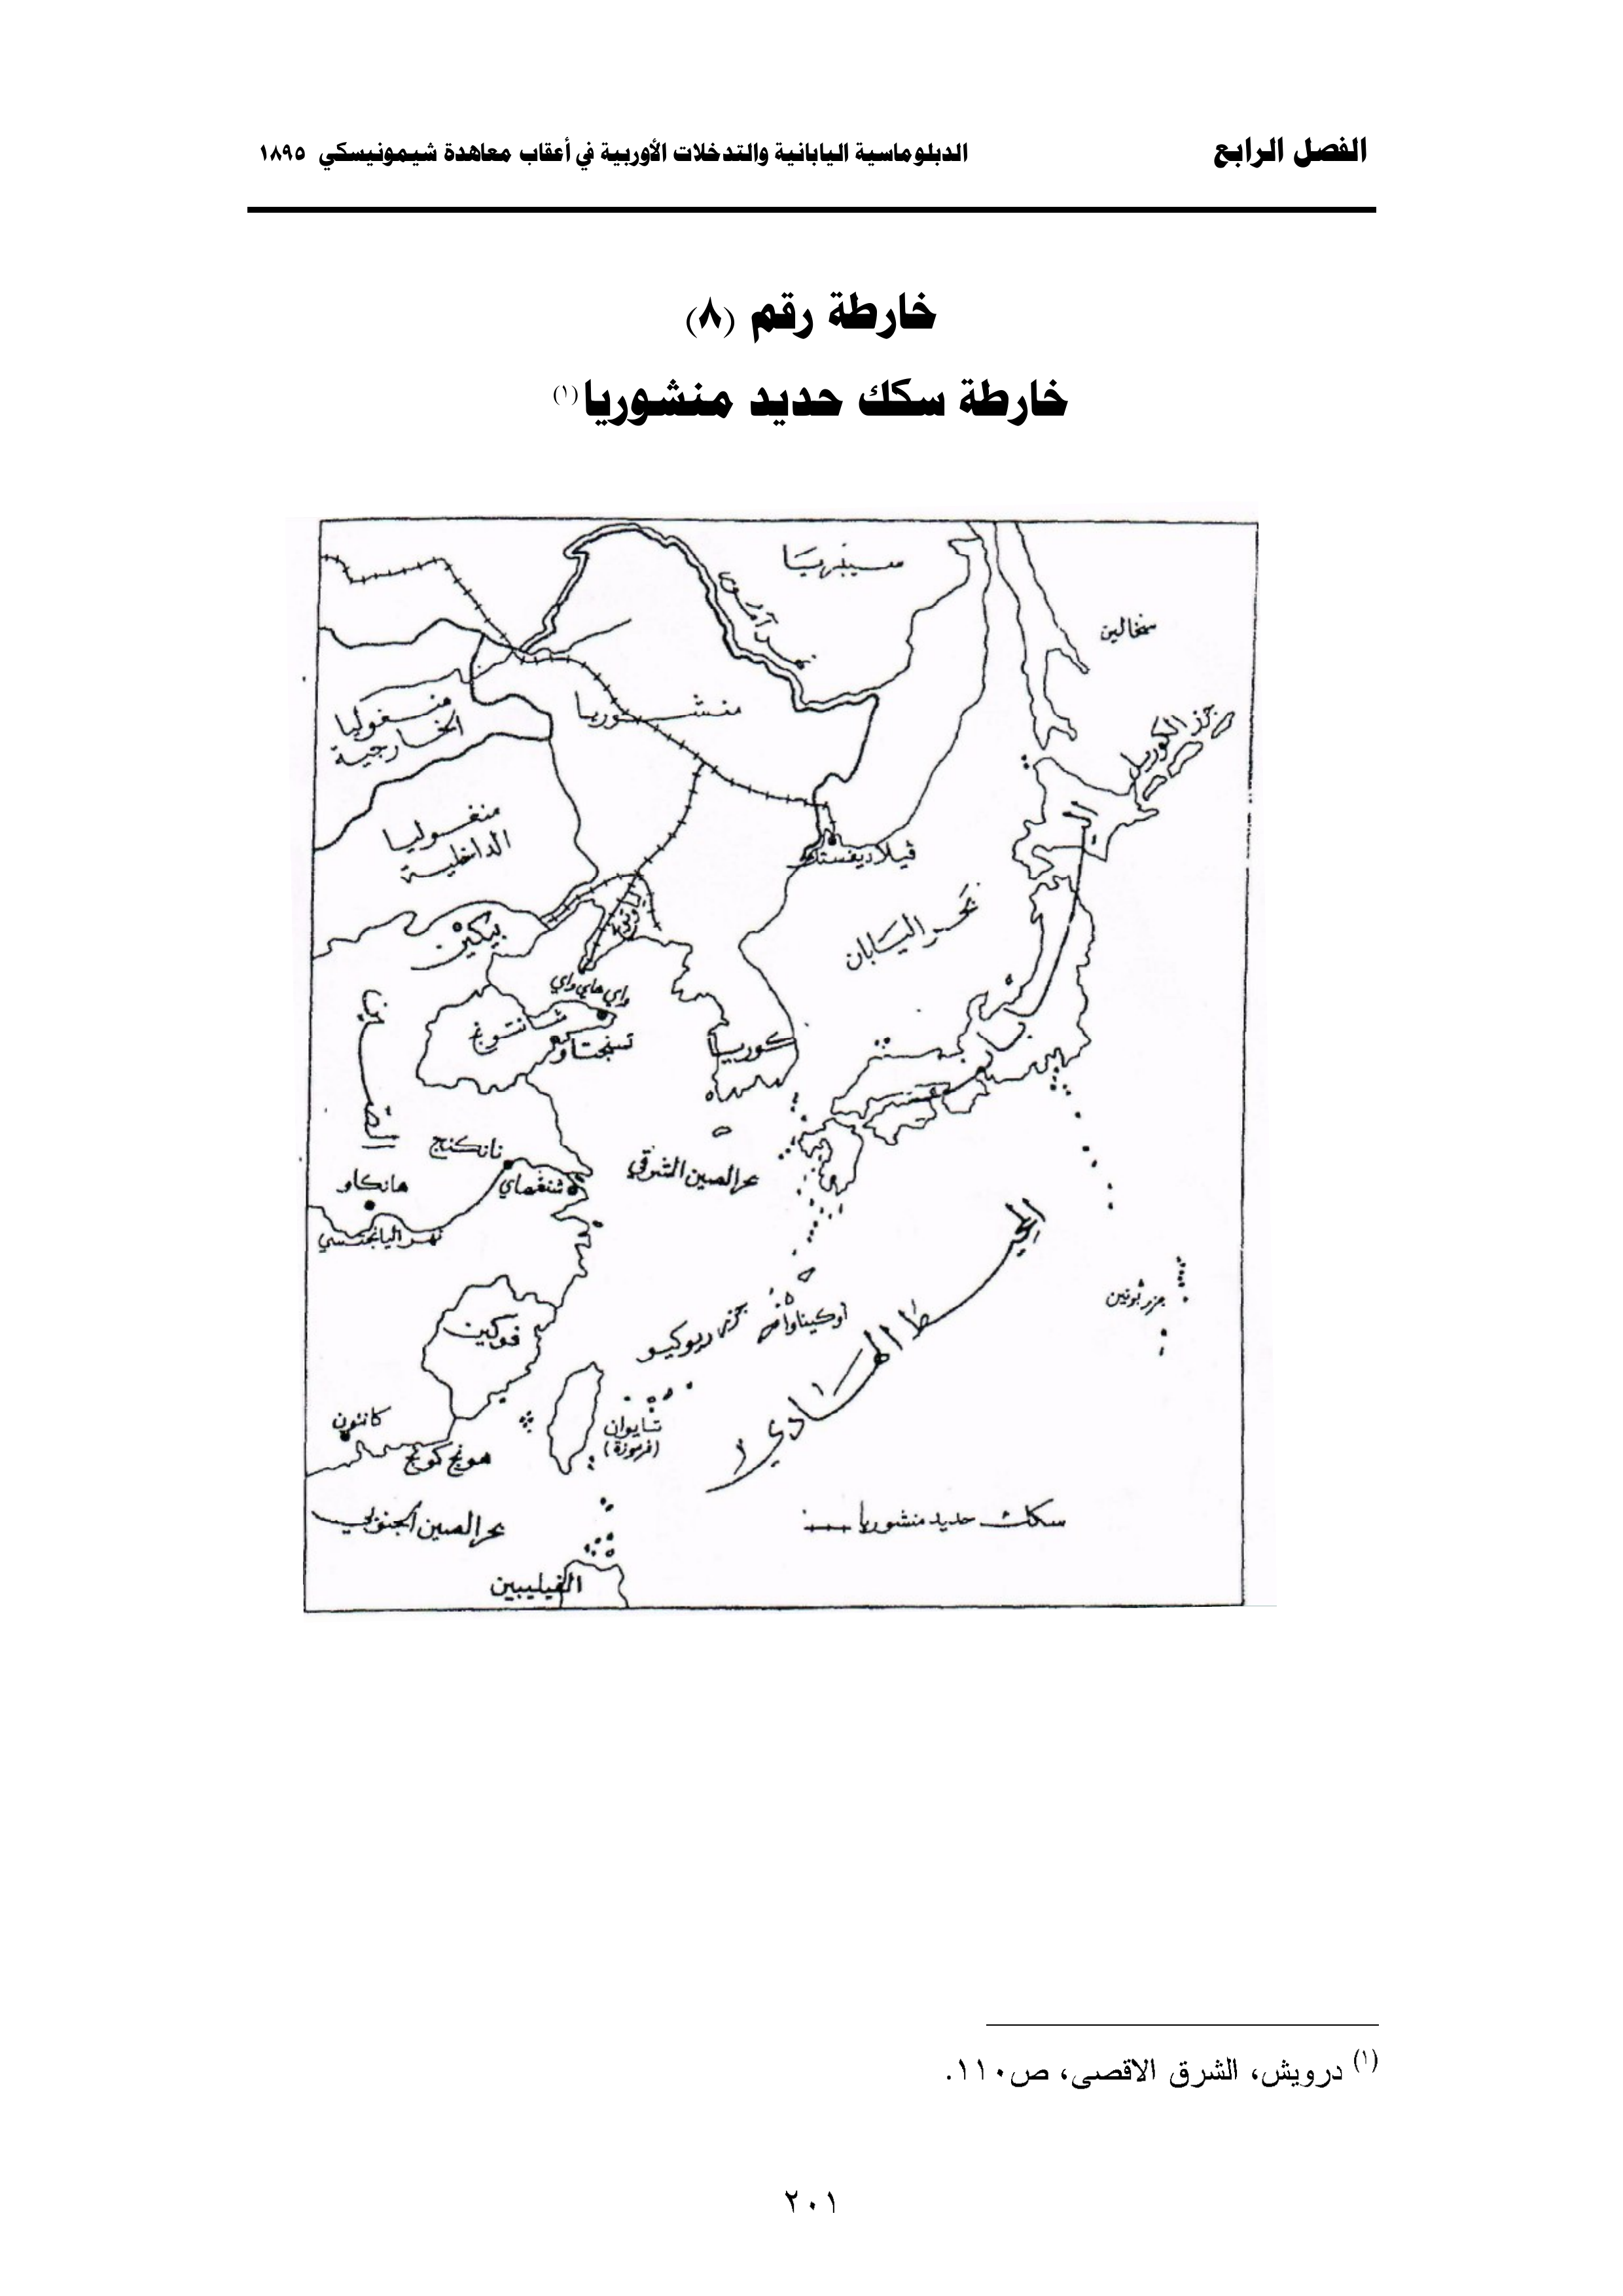 الفصل الرابع
الدبلوماسية اليابانية والتدخلات الأوربية في أعقاب معاهدة شيمونيسكي ١٨٩٥
خارطة رقم (٨)
خارطة سكك حديد منشوريا(١)
سيبيريا
نهر آمور
سخالين
جزر الكوريل
منغوليا
الخارجية
منشوريا
منغوليا
الداخلية
فيلاديفستك
اليابان
بحر اليابان
بيكين
واي هاي واي
شانتونغ
تسنجتاو
كوريا
الصين
نانكنج
شنغهاي
هانكاو
نهر اليانجتسي
بحر الصين الشرقي
المحيط الهادي
جزر بونين
اوكيناوا
جزر ريوكيو
فوكين
تايوان
(فرموزة)
كانتون
هونج كونج
بحر الصين الجنوبي
سكك حديد منشوريا
الفيليبين
(١) درويش، الشرق الاقصى، ص١١٠.
٢٠١